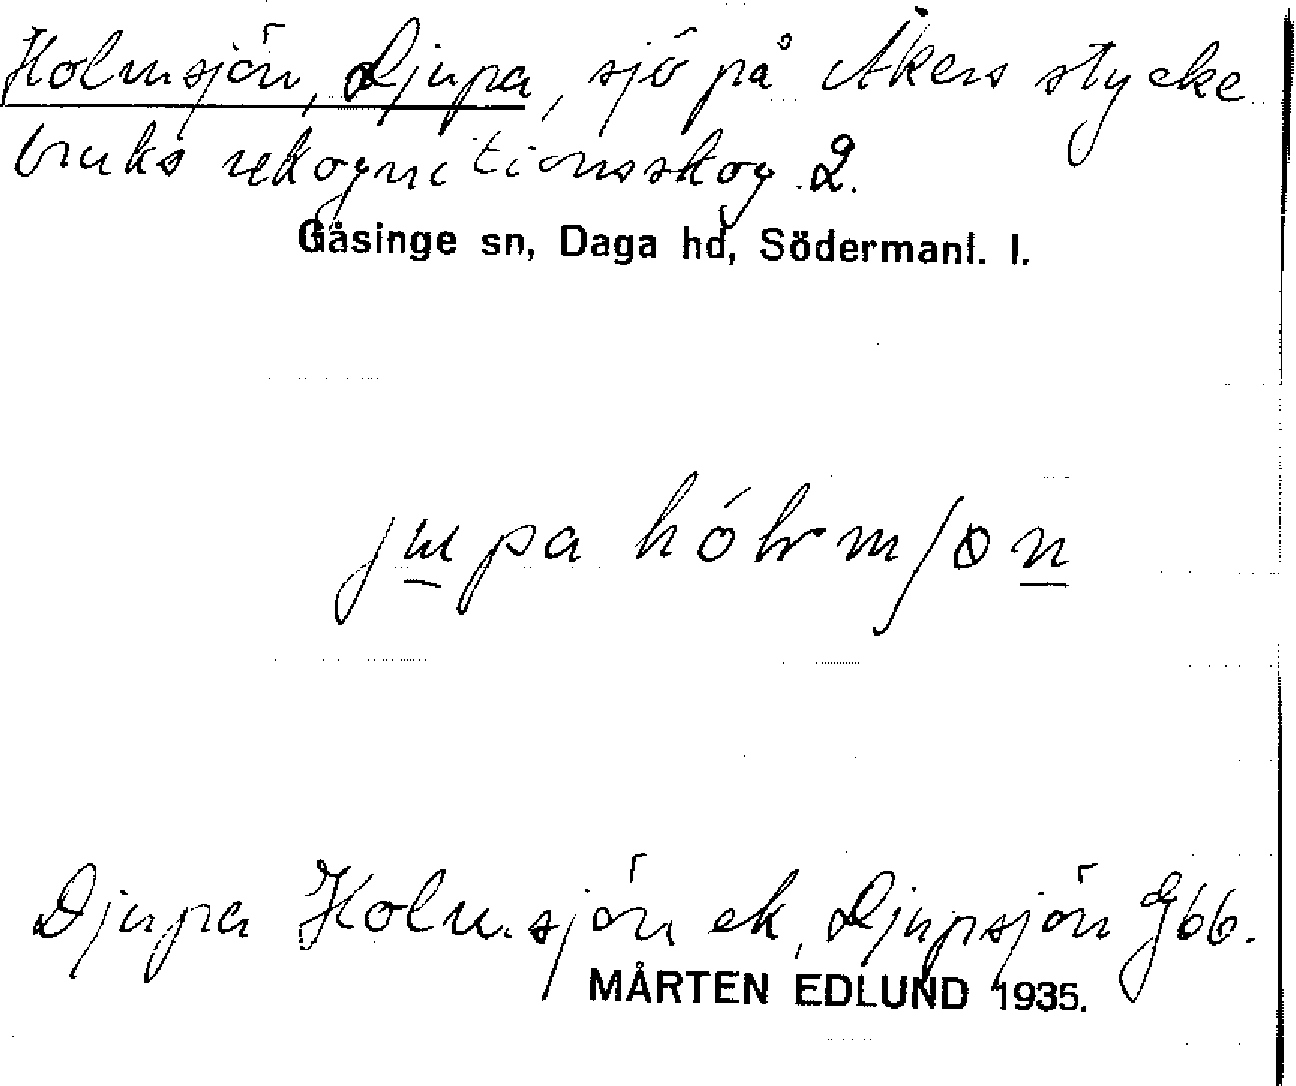 Holmsjön, Djupa, sjö på Åkers stycke
bruks rekognitionsskog 2.
Gåsinge sn, Daga hd, Södermanl. l.
Djupa Holmsjön ek, Djupsjön Gbb.
MÅRTEN EDLUND 1935.